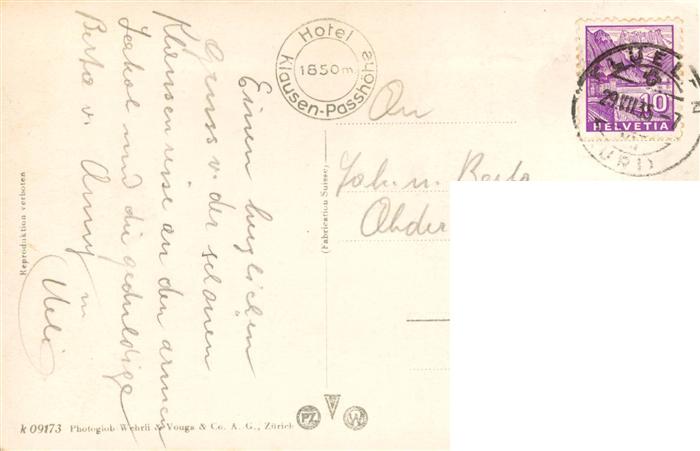 Hotel
Klausen-Passhöhe
1850m
Einen herzlichen
Gruss v. der schönen
Klausenreise an den armen
Jakob und die geduldige
Berta v. Anny u
Ueli
An
Jak. u. Berta
FLUELEN
(URI)
10
HELVETIA
(Fabrication Suisse)
Reproduktion verboten
k 09173 Photoglob-Wehrli & Vouga & Co. A. G., Zürich
PZ
W